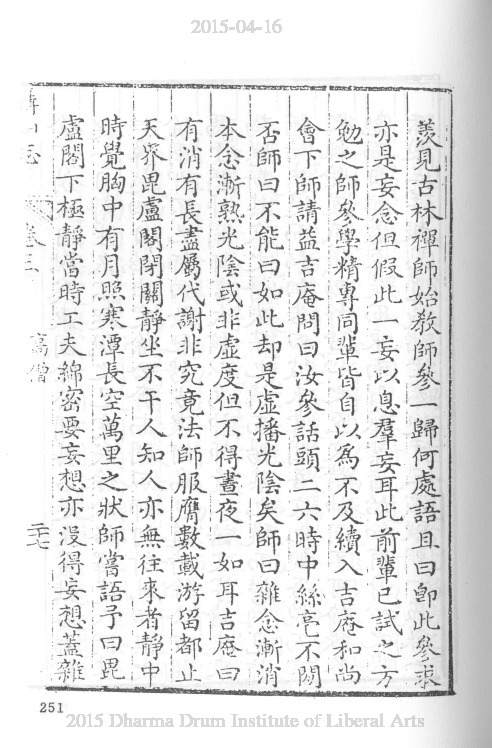 2015-04-16
羡見古林禪師始教師參一歸何處語且曰卽此參求
亦是妄念但假此一妄以息羣妄耳此前輩已試之方
勉之師參學精專同輩皆自以為不及續入吉庵和尚
會下師請益吉庵問曰汝參話頭二六時中絲毫不閒
否師曰不能曰如此却是虛播光陰矣師曰雜念漸消
本念漸熟光陰或非虛度但不得晝夜一如耳吉庵曰
有消有長盡屬代謝非究竟法師服膺數載游留都止
天界毘盧閣閉關靜坐不干人知人亦無往來者靜中
時覺胸中有月照寒潭長空萬里之狀師嘗語予曰毘
盧閣下極靜當時工夫綿密要妄想亦沒得妄想蓋雜
山志 卷三 高僧 二十七
251
2015 Dharma Drum Institute of Liberal Arts